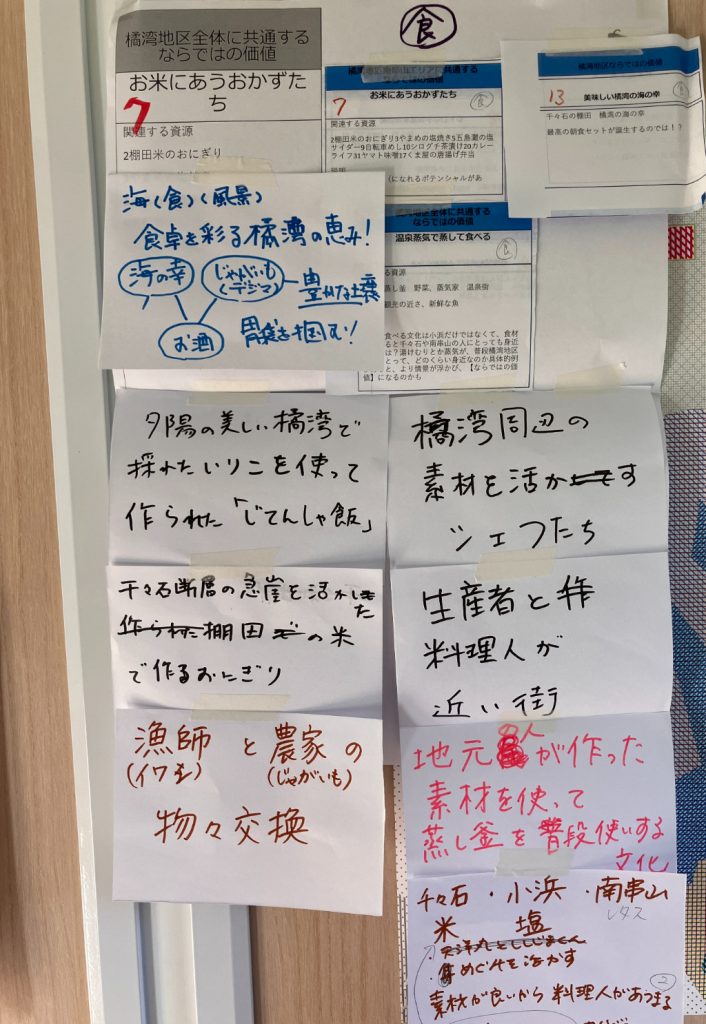 食
橘湾地区全体に共通する
ならではの価値
お米にあうおかずた
ち
7
関連する資源
2棚田米のおにぎり
ならではの価値
お米にあうおかずたち
食
7
関連する資源
2棚田米のおにぎり3やまめの塩焼き5五島灘の塩
サイダー9自転車めし10シログチ茶漬け20カレー
ライフ31ヤマト味噌17くま屋の唐揚げ弁当
(になれるポテンシャルがあ
橘湾地区ならではの価値
13
美味しい橘湾の海の幸
食
千々石の棚田 橘湾の海の幸
最高の朝食セットが誕生するのでは!?
海く食く風景〉
食卓を彩る橘湾の恵み!
海の幸
じゃがいも
(デジマ)
豊かな土壌
お酒
胃袋を掴む!
橘湾地区全体に共通する
ならではの価値
温泉蒸気で蒸して食べる
食
る資源
蒸し釜 野菜、蒸気家 温泉街
観光の近さ、新鮮な魚
食べる文化は小浜だけではなくて、食材
ると千々石や南串山の人にとっても身近
は?湯けむりとか蒸気が、普段橘湾地区
とって、どのくらい身近なのか具体的例
と、より情景が浮かび、【ならではの価
値】になるのかも
夕陽の美しい橘湾で
採れたいりこを使って
作られた「じてんしゃ飯」
橘湾周辺の
素材を活かす
シェフたち
千々石断層の急崖を活かした
作られた棚田での米
で作るおにぎり
生産者と
料理人が
近い街
漁師と農家の
(イワシ) (じゃがいも)
物々交換
地元の人が作った
素材を使って
蒸し釜を普段使いする
文化
千々石・小浜・南串山
レタス
米 塩
めぐみを活かす
2
素材が良いから料理人があつまる